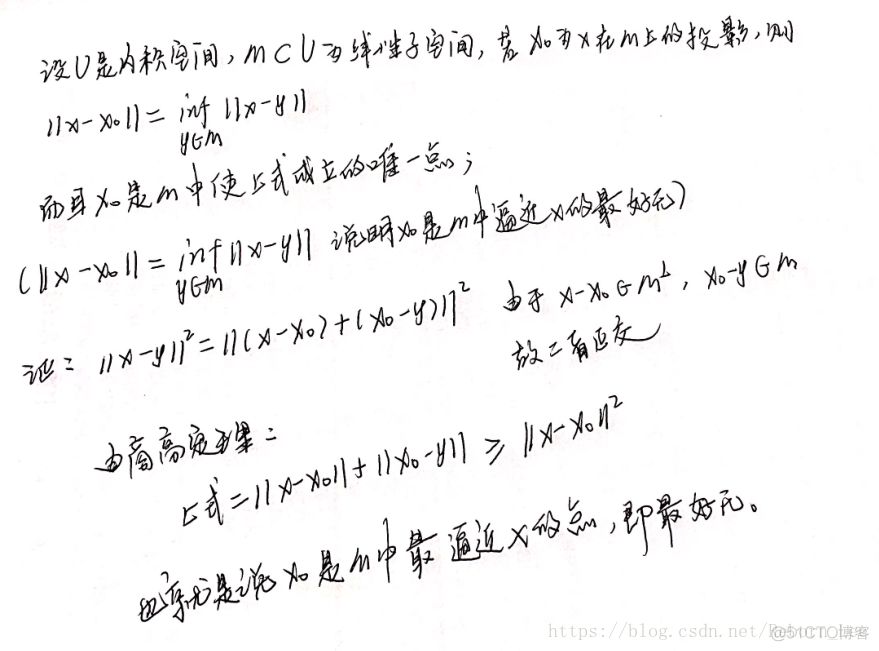 设U是内积空间, M⊂U为线性子空间, 若x₀为x在M上的投影, 则
||x-x₀|| = inf ||x-y||
y∈M
而且x₀是M中使上式成立的唯一点;
(||x-x₀|| = inf ||x-y|| 说明x₀是M中逼近x的最好元)
y∈M
证: ||x-y||² = ||(x-x₀)+(x₀-y)||² 由于 x-x₀∈M⊥, x₀-y∈M
故二者正交
由商高定理:
上式=||x-x₀||+||x₀-y|| ≥ ||x-x₀||²
也就是说x₀是M中最逼近x的点, 即最好元。
https://blog.csdn.net/
@51CTO博客